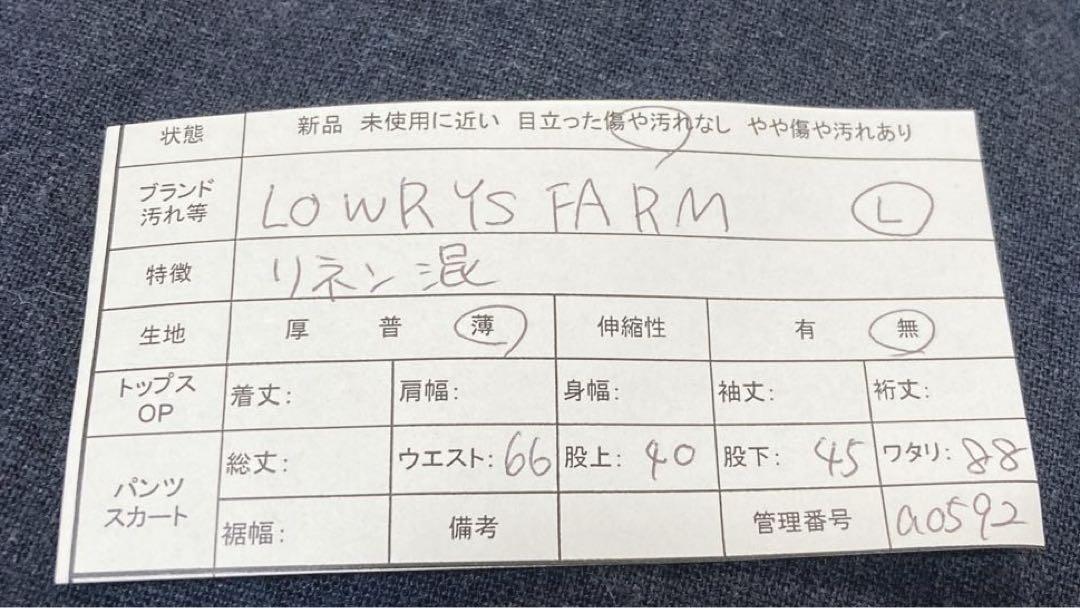 状態 新品 未使用に近い 目立った傷や汚れなし やや傷や汚れあり
ブランド
汚れ等 LOWRYS FARM L
特徴 リネン混
生地 厚 普 薄 伸縮性 有 無
トップス
OP 着丈: 肩幅: 身幅: 袖丈: 裄丈:
パンツ
スカート 総丈: ウエスト: 66 股上: 40 股下: 45 ワタリ: 88
裾幅: 備考 管理番号 a0592